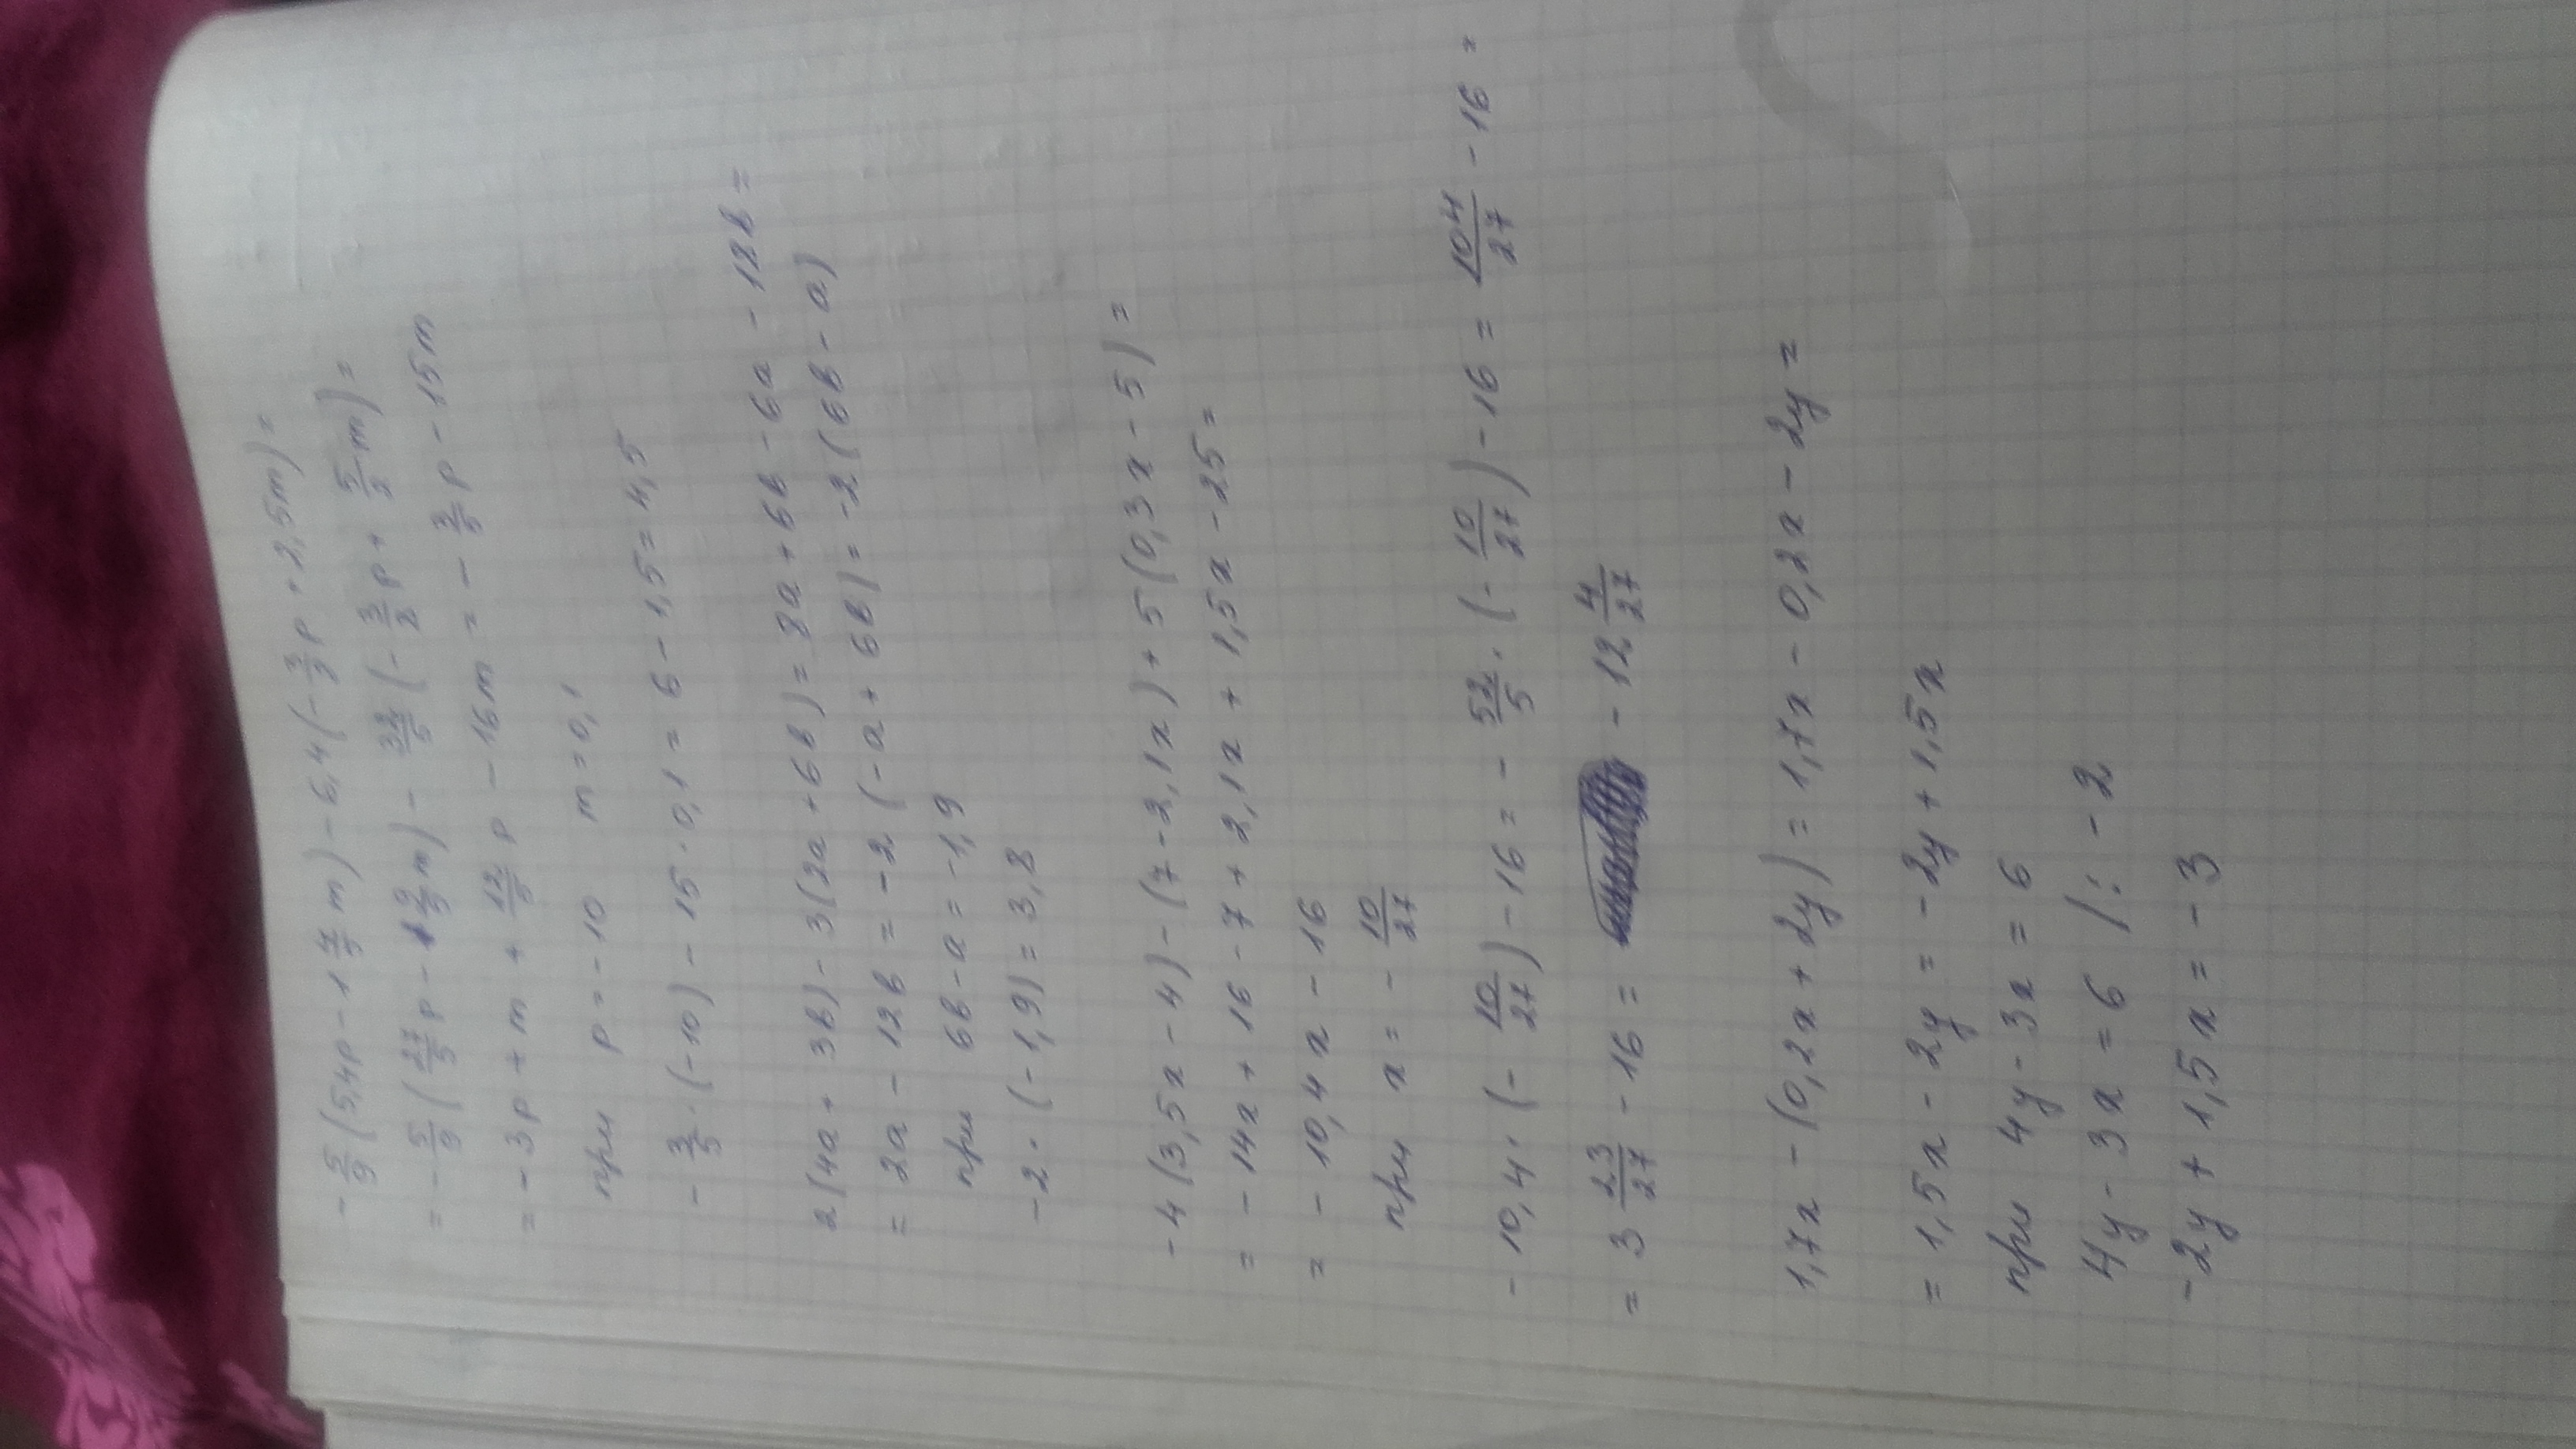 - 5/9 (5,4p - 1 4/5 m) - 6,4 (- 3/8 p + 2,5m) =
= - 5/9 (27/5 p - 9/5 m) - 32/5 (- 3/2 p + 5/2 m) =
= - 3p + m + 12/5 p - 16m = - 3/5 p - 15m
при p = - 10 m = 0,1
- 3/5 · (-10) - 15 · 0,1 = 6 - 1,5 = 4,5
2(4a + 3b) - 3(2a + 6b) = 8a + 6b - 6a - 18b =
= 2a - 12b = -2 (-a + 6b) = -2(6b - a)
при 6b - a = -1,9
-2 · (-1,9) = 3,8
-4(3,5x - 4) - (7 - 2,1x) + 5(0,3x - 5) =
= - 14x + 16 - 7 + 2,1x + 1,5x - 25 =
= - 10,4x - 16
при x = - 10/27
- 10,4 · (- 10/27) - 16 = - 52/5 · (- 10/27) - 16 = 104/27 - 16 =
= 3 23/27 - 16 = - 12 4/27
1,7x - (0,2x + 2y) = 1,7x - 0,2x - 2y =
= 1,5x - 2y = - 2y + 1,5x
при 4y - 3x = 6
4y - 3x = 6 /: - 2
- 2y + 1,5x = - 3